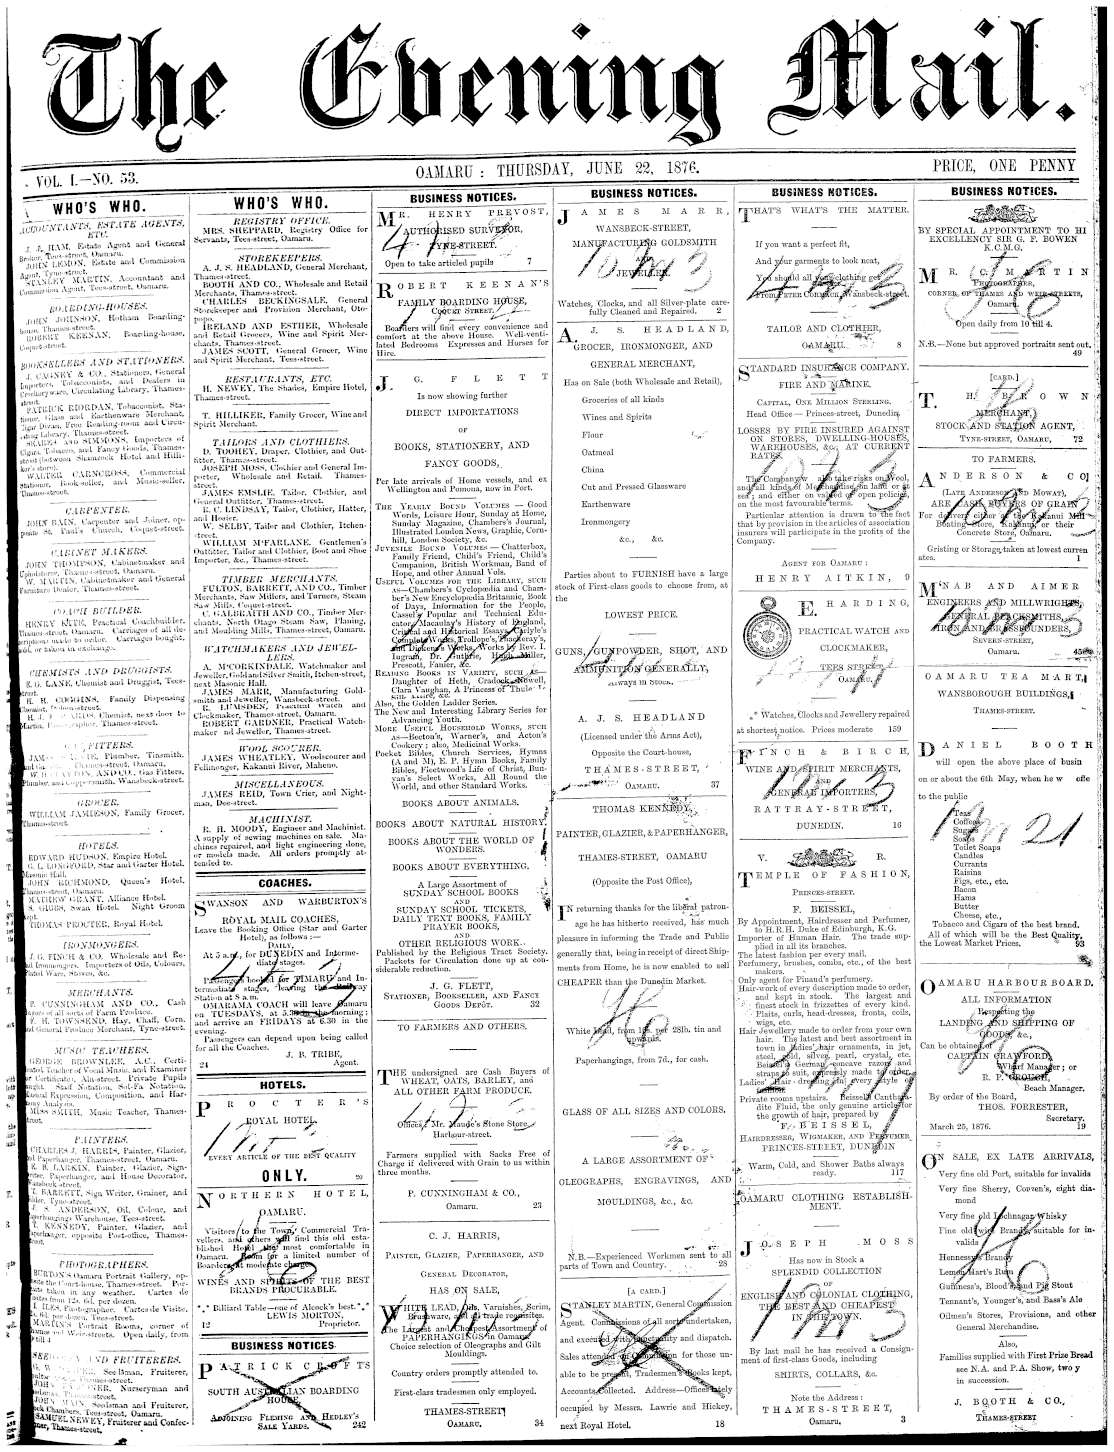 The Evening Mail.
VOL. I.—NO. 53.
OAMARU : THURSDAY, JUNE 22, 1876.
PRICE, ONE PENNY
WHO'S WHO.
ACCOUNTANTS, ESTATE AGENTS,
ETC.
J. J. HAM, Estate Agent and General
Broker, Tees-street, Oamaru.
JOHN LEMON, Estate and Commission
Agent, Tyne-street.
STANLEY MARTIN, Accountant and
Commission Agent, Tees-street, Oamaru.
BOARDING-HOUSES.
JOHN JOHNSON, Hotham Boarding-
house, Thames-street.
ROBERT KEENAN, Boarding-house,
Coquet-street.
BOOKSELLERS AND STATIONERS.
J. CAGNEY & CO., Stationers, General
Importers, Tobacconists, and Dealers in
Crockeryware, Circulating Library, Thames-
street.
PATRICK RIORDAN, Tobacconist, Sta-
tioner, Glass and Earthenware Merchant,
Cigar Divan, Free Reading-room and Circu-
lating Library, Thames-street.
SHARES AND SIMMONS, Importers of
Cigars, Tobacco, and Fancy Goods, Thames-
street (between Shamrock Hotel and Hilli-
ker's store).
WALTER CARNCROSS, Commercial
Stationer, Book-seller, and Music-seller,
Thames-street.
CARPENTER.
JOHN BAIN, Carpenter and Joiner, op-
posite St. Paul's Church, Coquet-street.
CABINET MAKERS.
JOHN THOMPSON, Cabinetmaker and
Upholsterer, Thames-street, Oamaru.
W. MARTIN, Cabinetmaker and General
Furniture Dealer, Thames-street.
COACH BUILDER.
HENRY KITE, Practical Coachbuilder,
Thames-street, Oamaru. Carriages of all de-
scriptions made to order. Carriages bought,
sold, or taken in exchange.
CHEMISTS AND DRUGGISTS.
E. G. LANE, Chemist and Druggist, Tees-
street.
H. H. COGGINS, Family Dispensing
Chemist, Thames-street.
Chemist, next door to
Thames-street.
FITTERS.
Plumber, Tinsmith,
Thames-street, Oamaru.
AND CO., Gas Fitters,
Plumber, and Coppersmith, Wansbeck-street.
GROCER.
WILLIAM JAMIESON, Family Grocer,
Thames-street.
HOTELS.
EDWARD HUDSON, Empire Hotel.
G. L. LONGFORD, Star and Garter Hotel.
Masonic Hall.
JOHN RICHMOND, Queen's Hotel,
Thames-street, Oamaru.
MATHEW GRANT, Alliance Hotel.
S. GIBBS, Swan Hotel. Night Groom
kept.
THOMAS PROCTER, Royal Hotel.
IRONMONGERS.
J. G. FINCH & CO. Wholesale and Re-
tail Ironmongers. Importers of Oils, Colours,
Plated Ware, Stoves, &c.
MERCHANTS.
P. CUNNINGHAM AND CO., Cash
Buyers of all sorts of Farm Produce.
F. H. TOWNSEND, Hay, Chaff, Corn,
and General Produce Merchant, Tyne-street.
MUSIC TEACHERS.
GEORGE BROWNLEE, A.C., Certi-
ficated Teacher of Vocal Music, and Examiner
for Certificates, Aln-street. Private Pupils
taught. Staff Notation, Sol-Fa Notation,
Musical Expression, Composition, and Har-
mony Analysis.
MISS SMITH, Music Teacher, Thames-
street.
PAINTERS.
CHARLES J. HARRIS, Painter, Glazier,
and Paperhanger, Thames-street, Oamaru.
E. B. LARKIN, Painter, Glazier, Sign-
writer, Paperhanger, and House Decorator,
Wansbeck-street.
T. BARRETT, Sign Writer, Grainer, and
Gilder, Tyne-street.
J. S. ANDERSON, Oil, Colour, and
Paperhangings Warehouse, Tees-street.
T. KENNEDY, Painter, Glazier, and
Paperhanger, opposite Post-office, Thames-
street.
PHOTOGRAPHERS.
BURTON'S Oamaru Portrait Gallery, op-
posite the Court-house, Thames-street. Por-
traits taken in any weather. Cartes de
visites from 12s. 6d. per dozen.
I. ILES, Photographer. Cartes de Visite,
per dozen, Tees-street.
MARTIN'S Portrait Rooms, corner of
Thames and Weir-streets. Open daily, from
10 till 4.
SEEDSMEN AND FRUITERERS.
Seedsman, Fruiterer,
Thames-street.
Nurseryman and
Seedsman, Thames-street.
JOHN MAIN, Seedsman and Fruiterer,
Chambers, Tees-street, Oamaru.
SAMUEL NEWEY, Fruiterer and Confec-
tioner, Thames-street.
WHO'S WHO.
REGISTRY OFFICE.
MRS. SHEPPARD, Registry Office for
Servants, Tees-street, Oamaru.
STOREKEEPERS.
A. J. S. HEADLAND, General Merchant,
Thames-street.
BOOTH AND CO., Wholesale and Retail
Merchants, Thames-street.
CHARLES BECKINGSALE, General
Storekeeper and Provision Merchant, Oto-
popo.
IRELAND AND ESTHER, Wholesale
and Retail Grocers, Wine and Spirit Mer-
chants, Thames-street.
JAMES SCOTT, General Grocer, Wine
and Spirit Merchant, Tees-street.
RESTAURANTS, ETC.
H. NEWEY, The Shades, Empire Hotel,
Thames-street.
T. HILLIKER, Family Grocer, Wine and
Spirit Merchant.
TAILORS AND CLOTHIERS.
D. TOOHEY, Draper, Clothier, and Out-
fitter, Thames-street.
JOSEPH MOSS, Clothier and General Im-
porter, Wholesale and Retail. Thames-
street.
JAMES EMSLIE, Tailor, Clothier, and
General Outfitter, Thames-street.
R. C. LINDSAY, Tailor, Clothier, Hatter,
and Hosier.
W. SELBY, Tailor and Clothier, Itchen-
street.
WILLIAM M'FARLANE. Gentlemen's
Outfitter, Tailor and Clothier, Boot and Shoe
Importer, &c., Thames-street.
TIMBER MERCHANTS.
FULTON, BARRETT, AND CO., Timber
Merchants, Saw Millers, and Turners, Steam
Saw Mills, Coquet-street.
C. GALBRAITH AND CO., Timber Mer-
chants. North Otago Steam Saw, Planing,
and Moulding Mills, Thames-street, Oamaru.
WATCHMAKERS AND JEWEL-
LERS.
A. M'CORKINDALE, Watchmaker and
Jeweller, Gold and Silver Smith, Itchen-street,
next Masonic Hall.
JAMES MARR, Manufacturing Gold-
smith and Jeweller, Wansbeck-street.
R. LUMSDEN, Practical Watch and
Clockmaker, Thames-street, Oamaru.
ROBERT GARDNER, Practical Watch-
maker and Jeweller, Thames-street.
WOOL SCOURER.
JAMES WHEATLEY, Woolscourer and
Fellmonger, Kakanui River, Maheno.
MISCELLANEOUS.
JAMES REID, Town Crier, and Night-
man, Dee-street.
MACHINIST.
R. H. MOODY, Engineer and Machinist.
A supply of sewing machines on sale. Ma-
chines repaired, and light engineering done,
or models made. All orders promptly at-
tended to.
COACHES.
SWANSON AND WARBURTON'S
ROYAL MAIL COACHES,
Leave the Booking Office (Star and Garter
Hotel), as follows :—
DAILY,
At 5 a.m., for DUNEDIN and Interme-
diate stages.
Passengers booked for TIMARU and In-
termediate stages, leaving the Railway
Station at 8 a.m.
OMARAMA COACH will leave Oamaru
on TUESDAYS, at 5.30 in the morning;
and arrive on FRIDAYS at 6.30 in the
evening.
Passengers can depend upon being called
for all the Coaches.
J. B. TRIBE,
24 Agent.
HOTELS.
PROCTER'S
ROYAL HOTEL.
EVERY ARTICLE OF THE BEST QUALITY
ONLY. 20
NORTHERN HOTEL,
OAMARU.
Visitors to the Town, Commercial Tra-
vellers, and others will find this old esta-
blished Hotel the most comfortable in
Oamaru. Room for a limited number of
Boarders at moderate charges.
WINES AND SPIRITS OF THE BEST
BRANDS PROCURABLE.
*.* Billiard Table—one of Alcock's best.*.*
LEWIS MORTON,
12 Proprietor.
BUSINESS NOTICES
PATRICK CROFTS
SOUTH AUSTRALIAN BOARDING
HOUSE,
ADJOINING FLEMING AND HEDLEY'S
SALE YARDS. 242
BUSINESS NOTICES.
MR. HENRY PREVOST,
AUTHORISED SURVEYOR,
TYNE-STREET.
Open to take articled pupils 7
ROBERT KEENAN'S
FAMILY BOARDING HOUSE,
COQUET STREET.
Boarders will find every convenience and
comfort at the above House. Well-venti-
lated Bedrooms Expresses and Horses for
Hire.
J. G. FLETT
Is now showing further
DIRECT IMPORTATIONS
OF
BOOKS, STATIONERY, AND
FANCY GOODS,
Per late arrivals of Home vessels, and ex
Wellington and Pomona, now in Port.
THE YEARLY BOUND VOLUMES — Good
Words, Leisure Hour, Sunday at Home,
Sunday Magazine, Chambers's Journal,
Illustrated London News, Graphic, Corn-
hill, London Society, &c.
JUVENILE BOUND VOLUMES — Chatterbox,
Family Friend, Child's Friend, Child's
Companion, British Workman, Band of
Hope, and other Annual Vols.
USEFUL VOLUMES FOR THE LIBRARY, SUCH
AS—Chambers's Cyclopædia and Cham-
ber's New Encyclopedia Britannic, Book
of Days, Information for the People,
Cassel's Popular and Technical Edu-
cator, Macaulay's History of England,
Critical and Historical Essays, Carlyle's
Complete Works, Trollope's, Thackeray's,
and Dickens's Works, Works by Rev. I.
Ingram, Dr. Guthrie, Hugh Miller,
Prescott, Fanier, &c.
READING BOOKS IN VARIETY, SUCH AS—
Daughter of Heth, Cradock Nowell,
Clara Vaughan, A Princess of Thule
Silk Attire, &c.
Also, the Golden Ladder Series.
The New and Interesting Library Series for
Advancing Youth.
MORE USEFUL HOUSEHOLD WORKS, SUCH
AS—Beeton's, Warner's, and Acton's
Cookery ; also, Medicinal Works.
Pocket Bibles, Church Services, Hymns
(A and M), E. P. Hymn Books, Family
Bibles, Fleetwood's Life of Christ, Bun-
yan's Select Works, All Round the
World, and other Standard Works.
BOOKS ABOUT ANIMALS.
BOOKS ABOUT NATURAL HISTORY.
BOOKS ABOUT THE WORLD OF
WONDERS.
BOOKS ABOUT EVERYTHING.
A Large Assortment of
SUNDAY SCHOOL BOOKS
AND
SUNDAY SCHOOL TICKETS,
DAILY TEXT BOOKS, FAMILY
PRAYER BOOKS,
AND
OTHER RELIGIOUS WORK.
Published by the Religious Tract Society.
Packets for Circulation done up at con-
siderable reduction.
J. G. FLETT,
STATIONER, BOOKSELLER, AND FANCY
GOODS DEPÔT. 32
TO FARMERS AND OTHERS.
THE undersigned are Cash Buyers of
WHEAT, OATS, BARLEY, and
ALL OTHER FARM PRODUCE.
Offices, Mr. Maude's Stone Store,
Harbour-street.
Farmers supplied with Sacks Free of
Charge if delivered with Grain to us within
three months.
P. CUNNINGHAM & CO.,
Oamaru. 23
C. J. HARRIS,
PAINTER, GLAZIER, PAPERHANGER, AND
GENERAL DECORATOR,
HAS ON SALE,
WHITE LEAD, Oils, Varnishes, Scrim,
Brushware, and all trade requisites.
The Largest and Cheapest Assortment of
PAPERHANGINGS in Oamaru
Choice selection of Oleographs and Gilt
Mouldings.
Country orders promptly attended to.
First-class tradesmen only employed.
THAMES-STREET,
OAMARU, 34
BUSINESS NOTICES.
JAMES MARR,
WANSBECK-STREET,
MANUFACTURING GOLDSMITH
AND
JEWELLER.
Watches, Clocks, and all Silver-plate care-
fully Cleaned and Repaired. 2
A. J. S. HEADLAND,
GROCER, IRONMONGER, AND
GENERAL MERCHANT,
Has on Sale (both Wholesale and Retail),
Groceries of all kinds
Wines and Spirits
Flour
Oatmeal
China
Cut and Pressed Glassware
Earthenware
Ironmongery
&c., &c.
Parties about to FURNISH have a large
stock of First-class goods to choose from, at
the
LOWEST PRICE.
GUNS, GUNPOWDER, SHOT, AND
AMMUNITION GENERALLY,
Always in Stock.
A. J. S. HEADLAND
(Licensed under the Arms Act),
Opposite the Court-house,
THAMES-STREET,
OAMARU. 37
THOMAS KENNEDY,
PAINTER, GLAZIER, & PAPERHANGER,
THAMES-STREET, OAMARU
(Opposite the Post Office),
IN returning thanks for the liberal patron-
age he has hitherto received, has much
pleasure in informing the Trade and Public
generally that, being in receipt of direct Ship-
ments from Home, he is now enabled to sell
CHEAPER than the Dunedin Market.
White Lead, from 10s. per 28lb. tin and
upwards.
Paperhangings, from 7d., for cash.
GLASS OF ALL SIZES AND COLORS,
A LARGE ASSORTMENT OF
OLEOGRAPHS, ENGRAVINGS, AND
MOULDINGS, &c., &c.
N.B.—Experienced Workmen sent to all
parts of Town and Country. 28
[A CARD.]
STANLEY MARTIN, General Commission
Agent. Commissions of all sorts undertaken,
and executed with punctuality and dispatch.
Sales attended on Commission for those un-
able to be present, Tradesmen's Books kept,
Accounts Collected. Address—Offices lately
occupied by Messrs. Lawrie and Hickey,
next Royal Hotel. 18
BUSINESS NOTICES.
THAT'S WHAT'S THE MATTER.
If you want a perfect fit,
And your garments to look neat,
You should all your clothing get
From PETER CORMACK, Wansbeck-street.
TAILOR AND CLOTHIER,
OAMARU. 8
STANDARD INSURANCE COMPANY.
FIRE AND MARINE.
CAPITAL, ONE MILLION STERLING.
Head Office — Princes-street, Dunedin
LOSSES BY FIRE INSURED AGAINST
ON STORES, DWELLING-HOUSES,
WAREHOUSES, &c., AT CURRENT
RATES.
The Company also take risks on Wool,
and all kinds of Merchandise on land or at
sea, and either on valued or open policies,
on the most favourable terms.
Particular attention is drawn to the fact
that by provision in the articles of association
insurers will participate in the profits of the
Company.
AGENT FOR OAMARU :
HENRY AITKIN, 9
E. HARDING,
PRACTICAL WATCH AND
CLOCKMAKER,
TEES STREET,
OAMARU.
*.* Watches, Clocks, and Jewellery repaired
at shortest notice. Prices moderate 159
FINCH & BIRCH,
WINE AND SPIRIT MERCHANTS,
AND
GENERAL IMPORTERS,
RATTRAY-STREET,
DUNEDIN. 16
V. R.
TEMPLE OF FASHION,
PRINCES-STREET.
F. BEISSEL,
By Appointment, Hairdresser and Perfumer,
to H.R.H. Duke of Edinburgh, K.G.
Importer of Human Hair. The trade sup-
plied in all its branches.
The latest fashion per every mail.
Perfumery, brushes, combs, etc., of the best
makers.
Only agent for Pinaud's perfumery.
Hair-work of every description made to order,
and kept in stock. The largest and
finest stock in frizzettes of every kind.
Plaits, curls, head-dresses, fronts, coils,
wigs, etc.
Hair Jewellery made to order from your own
hair. The latest and best assortment in
town in ladies' hair ornaments, in jet,
steel, gold, silver, pearl, crystal, etc.
Beissel's German concave razors and
straps to suit, expressly made to order.
Ladies' Hair-dressing in every style of
fashion.
Private rooms upstairs. Beissel's Cantha-
dite Fluid, the only genuine article for
the growth of hair, prepared by
F. BEISSEL,
HAIRDRESSER, WIGMAKER, AND PERFUMER,
PRINCES-STREET, DUNEDIN
Warm, Cold, and Shower Baths always
ready. 117
OAMARU CLOTHING ESTABLISH-
MENT.
JOSEPH MOSS
Has now in Stock a
SPLENDID COLLECTION
OF
ENGLISH AND COLONIAL CLOTHING,
THE BEST AND CHEAPEST
IN THE TOWN.
By last mail he has received a Consign-
ment of first-class Goods, including
SHIRTS, COLLARS, &c.
Note the Address :
THAMES-STREET,
Oamaru. 3
BUSINESS NOTICES.
BY SPECIAL APPOINTMENT TO HI
EXCELLENCY SIR G. F. BOWEN
K.C.M.G.
MR. C. MARTIN
PHOTOGRAPHER,
CORNER OF THAMES AND WEIR-STREETS,
Oamaru.
Open daily from 10 till 4.
N.B.—None but approved portraits sent out.
49
[CARD.]
T. H. BROWN
MERCHANT,
STOCK AND STATION AGENT,
TYNE-STREET, OAMARU, 72
TO FARMERS.
ANDERSON & CO
(LATE ANDERSON AND MOWAT),
ARE CASH BUYERS OF GRAIN
For delivery either at the Kakanui Mill
Boating Store, Kakanui, or their
Concrete Store, Oamaru.
Gristing or Storage taken at lowest curren
ates. 1
M'NAB AND AIMER
ENGINEERS AND MILLWRIGHTS,
GENERAL BLACKSMITHS,
IRON AND BRASSFOUNDERS,
SEVERN-STREET,
Oamaru. 45
OAMARU TEA MART,
WANSBOROUGH BUILDINGS,
THAMES-STREET.
DANIEL BOOTH
will open the above place of busin
on or about the 6th May, when he w offe
to the public
Teas
Coffees
Sugars
Soaps
Toilet Soaps
Candles
Currants
Raisins
Figs, etc., etc.
Bacon
Hams
Butter
Cheese, etc.,
Tobacco and Cigars of the best brand.
All of which will be the Best Quality,
the Lowest Market Prices. 93
OAMARU HARBOUR BOARD.
ALL INFORMATION
Respecting the
LANDING AND SHIPPING OF
GOODS, &c.,
Can be obtained of
CAPTAIN CRAWFORD,
Wharf Manager ; or
R. P. CROUGH,
Beach Manager.
By order of the Board,
THOS. FORRESTER,
Secretary.
March 25, 1876. 19
ON SALE, EX LATE ARRIVALS,
Very fine old Port, suitable for invalids
Very fine Sherry, Conven's, eight dia-
mond
Very fine old Lochnagar Whisky
Fine old wine Brandy, suitable for in-
valids
Hennessy's Brandy
Lemon Hart's Rum
Guinness, Blood's, and Pig Stout
Tennant's, Younger's, and Bass's Ale
Oilmen's Stores, Provisions, and other
General Merchandise.
Also,
Families supplied with First Prize Bread
see N.A. and P.A. Show, two y
in succession.
J. BOOTH & CO.,
THAMES-STREET